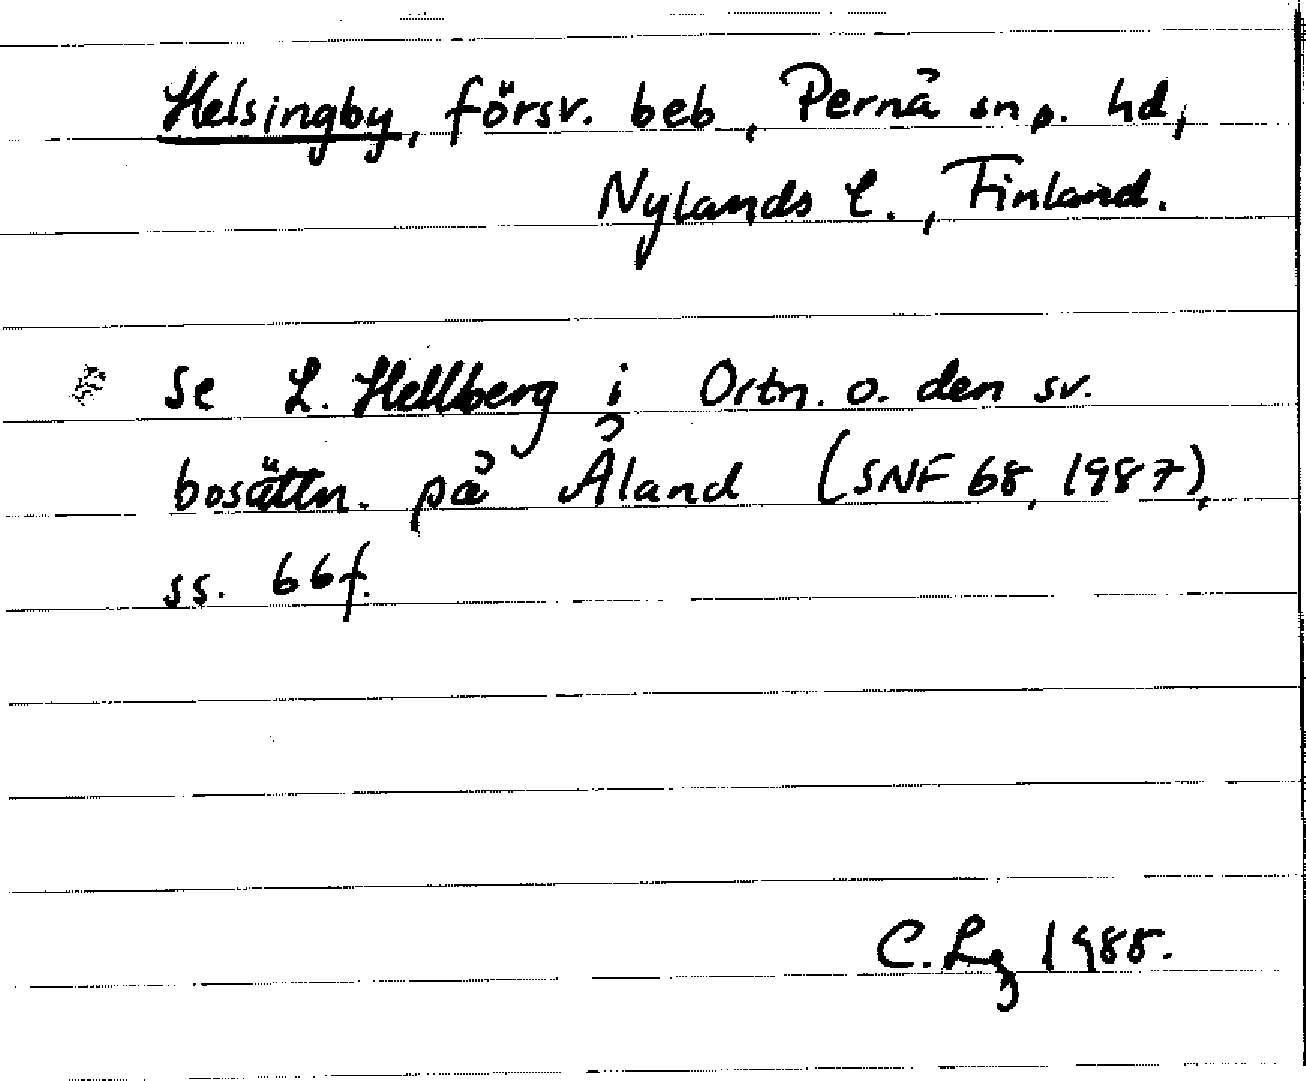 Helsingby, försv. beb, Pernå sn o. hd,
Nylands l., Finland.
Se L. Hellberg i Ortn. o. den sv.
bosättn. på Åland (SNF 68, 1987),
ss. 66f.
C. Lg 1988.